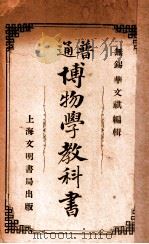 無錫華文祺編輯
普通
博物學教科書
上海文明書局出版